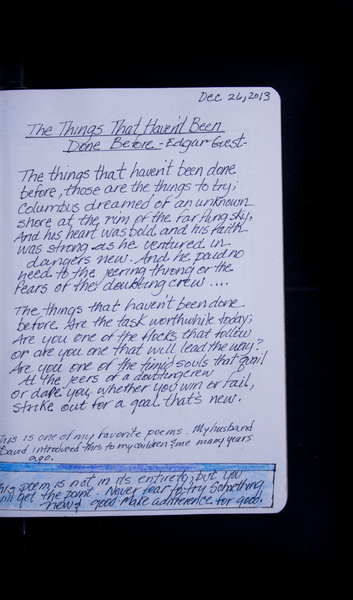 Dec 26, 2013
The Things That Haven't Been
Done Before - Edgar Guest -
The things that haven't been done
before, those are the things to try;
Columbus dreamed of an unknown
shore at the rim of the far flung sky,
And his heart was bold and his faith
was strong as he ventured in
dangers new. And he paid no
heed to the jeering throng or the
fears of the doubting crew ....
The things that haven't been done
before Are the task worthwhile today;
Are you one of the flocks that follow
or are you one that will lead the way?
Are you one of the timid souls that quail
At the jeers of a doubting crew
Or dare you, whether you win or fail,
Strike out for a goal that's new.
This is one of my favorite poems. My husband
David introduced this to my children & me many years
ago.
This poem is not in its entirety, but you
will get the point. Never fear to try something
new & good. Make a difference for good.